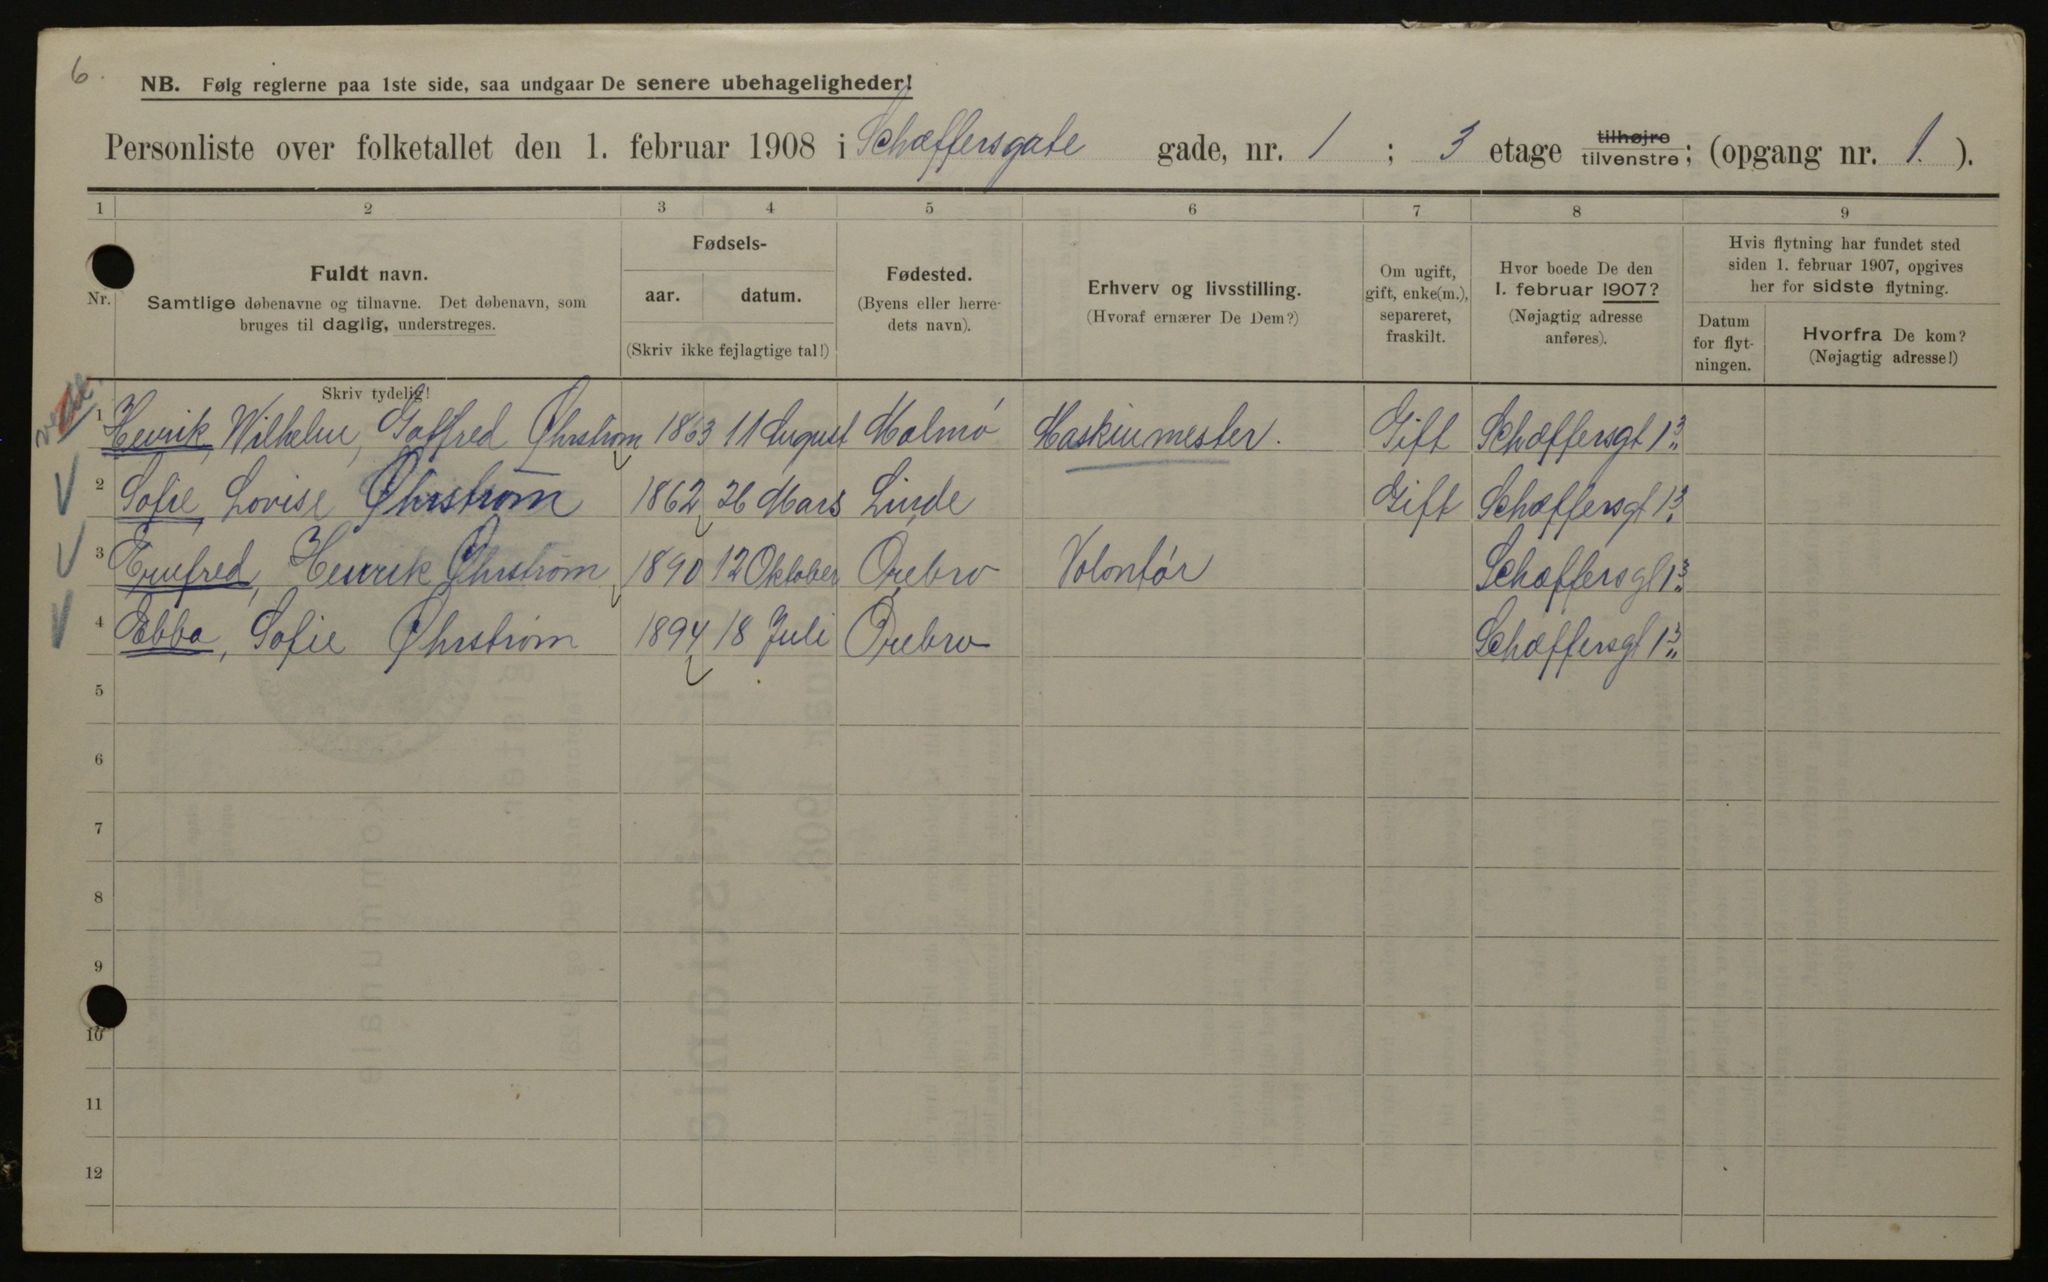 6.
NB. Følg reglerne paa 1ste side, saa undgaar De senere ubehageligheder!
Personliste over folketallet den 1. februar 1908 i Schæffersgate gade, nr. 1 ; 3 etage tilhøjre tilvenstre ; (opgang nr. 1. ).
1 2 3 4 5 6 7 8 9
Nr.
Fuldt navn.
Samtlige døbenavne og tilnavne. Det døbenavn, som
bruges til daglig, understreges.
Skriv tydelig!
Fødsels-
aar. datum.
(Skriv ikke fejlagtige tal!)
Fødested.
(Byens eller herre-
dets navn).
Erhverv og livsstilling.
(Hvoraf ernærer De Dem?)
Om ugift,
gift, enke(m.),
separeret,
fraskilt.
Hvor boede De den
1. februar 1907?
(Nøjagtig adresse
anføres).
Hvis flytning har fundet sted
siden 1. februar 1907, opgives
her for sidste flytning.
Datum
for flyt-
ningen.
Hvorfra De kom?
(Nøjagtig adresse!)
1 Henrik, Wilhelm, Gottfred Øhrstrøm 1863 11 August Malmø Maskinmester. Gift Schæffersgt 1 3
2 Sofie, Lovise Øhrstrøm 1862 26 Mars Linde Gift Schæffersgt 1 3
3 Henrik Øhrstrøm 1890 12 Oktober Örebro Volontør Schæffersgt 1 3
4 Ebba, Sofie Øhrstrøm 1894 18 Juli Örebro Schæffersgt 1 3
5
6
7
8
9
10
11
12